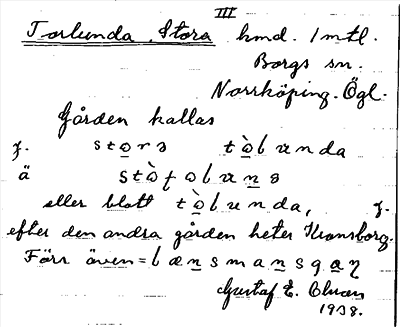 III
Torlunda, Stora hmd. 1 mtl.
Borgs sn.
Norrköping. Ögl.
Gården kallas
z. stọrə tọ̀lunda
ä stọ̀ṛtolunə
eller blott tọ̀lunda, z.
efter den andra gården heter Kronsborg.
Förr även = lænsmansgaɳ
Gustaf E.
1938.